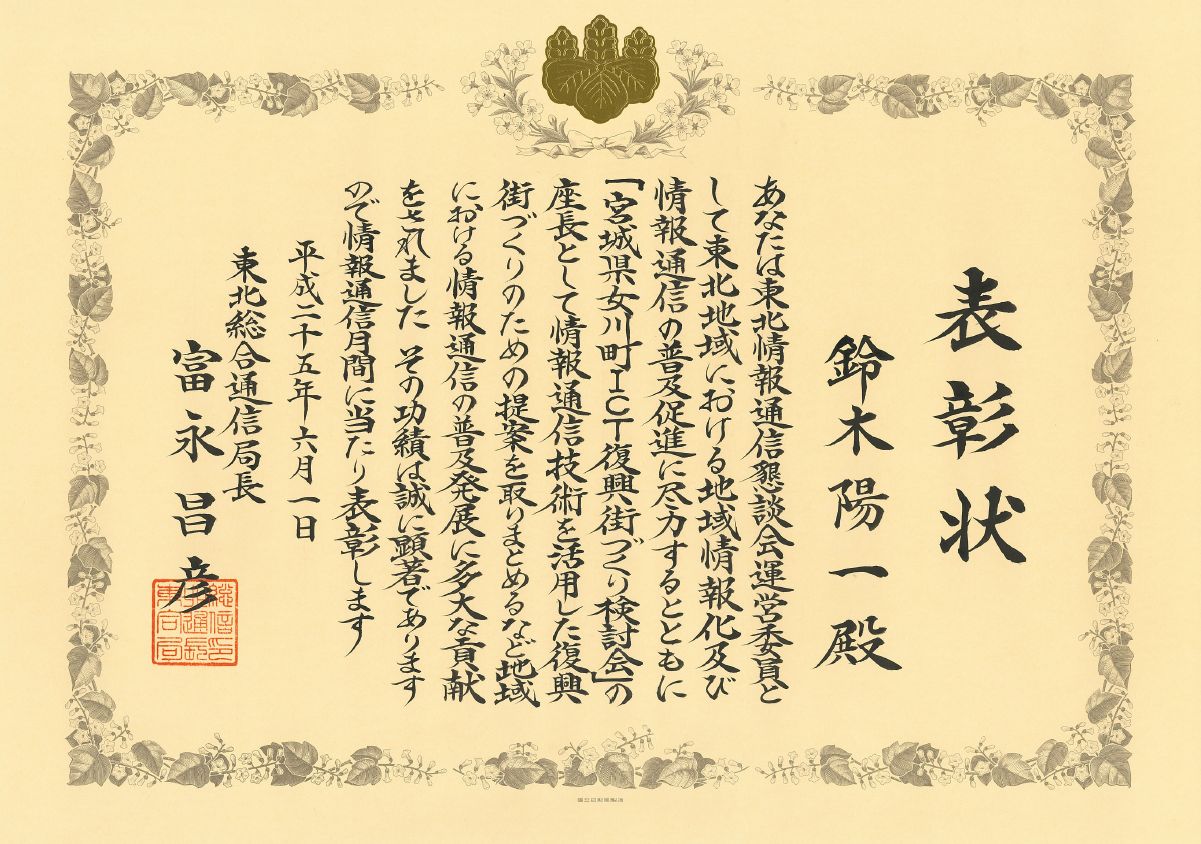 表彰状
鈴木陽一殿
あなたは東北情報通信懇談会運営委員と
して東北地域における地域情報化及び
情報通信の普及促進に尽力するとともに
「宮城県女川町ICT復興街づくり検討会」の
座長として情報通信技術を活用した復興
街づくりのための提案を取りまとめるなど地域
における情報通信の普及発展に多大な貢献
をされました その功績は誠に顕著であります
ので情報通信月間に当たり表彰します
平成二十五年六月一日
東北総合通信局長
富永昌彦